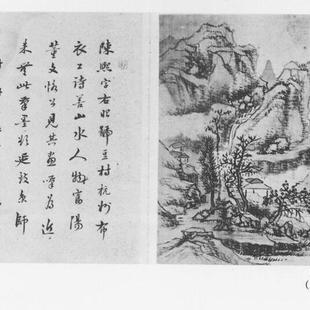 陳熙字右昭號豆村杭州布
衣工詩善山水人物富陽
董文恪公見其畫嘆為近
來無此筆墨延致京師